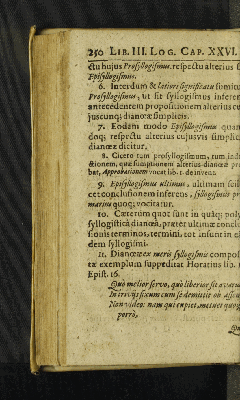 250 LIB. III. LOG. CAP. XXVI.
ctu hujus Prosyllogismus, respectu alterius
Episyllogismus.
6. Interdum & latiore significatu sumitur
Prosyllogismus, ut sit syllogismus inferens
antecedentem propositionem alterius cu-
juscunq; dianoeæ simplicis.
7. Eodem modo Episyllogismus quan-
doq; respectu alterius cujusvis simplicis
dianoeæ dicitur.
8. Cicero tum prosyllogismum, tum
ctionem, quæ sumptionem alterius dianoeæ
bat, Approbationem vocat lib. 1. de invent.
9. Episyllogismus ultimus, ultimam scil.
cet conclusionem inferens, syllogismus
marius quoq; vocitatur.
10. Cæterùm quot sunt in quâq; poly-
syllogisticâ dianoeâ, præter ultimæ conclu-
sionis terminos, termini, tot insunt in
dem syllogismi.
11. Dianoeæ ex meris syllogismis compos
tæ exemplum suppeditat Horatius lib. 1.
Epist. 16.
Quò melior servo, quò liberior sit avarus
In triviis fixum cum se demittit ob assem
Non video: nam qui cupiet, metuet quoq;
porrò,